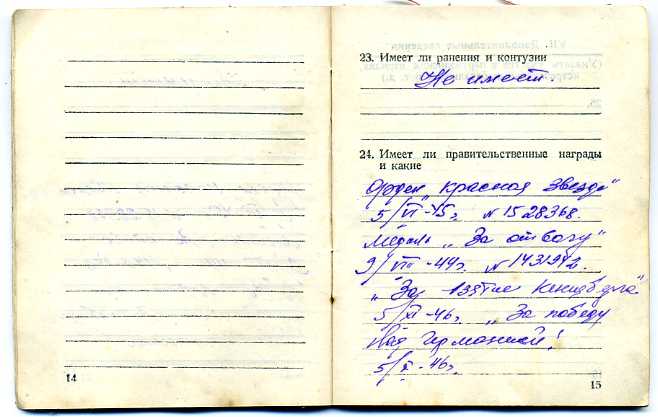 14
23. Имеет ли ранения и контузии
Не имеет.
24. Имеет ли правительственные награды
и какие
Орден „Красная Звезда"
5/VI-45г. №1528368.
Медаль „За отвагу"
9/VIII-44г. №1431942.
„За взятие Кенигсберга"
5/XI-46г. „За победу
над Германией!
5/X-46г.
15